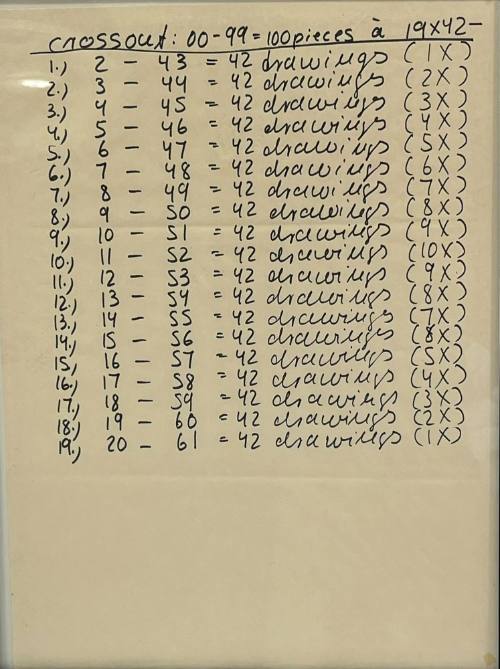 crossout: 00-99=100pieces à 19x42-
1.) 2 - 43 = 42 drawings (1X)
2.) 3 - 44 = 42 drawings (2X)
3.) 4 - 45 = 42 drawings (3X)
4.) 5 - 46 = 42 drawings (4X)
5.) 6 - 47 = 42 drawings (5X)
6.) 7 - 48 = 42 drawings (6X)
7.) 8 - 49 = 42 drawings (7X)
8.) 9 - 50 = 42 drawings (8X)
9.) 10 - 51 = 42 drawings (9X)
10.) 11 - 52 = 42 drawings (10X)
11.) 12 - 53 = 42 drawings (9X)
12.) 13 - 54 = 42 drawings (8X)
13.) 14 - 55 = 42 drawings (7X)
14.) 15 - 56 = 42 drawings (8X)
15.) 16 - 57 = 42 drawings (5X)
16.) 17 - 58 = 42 drawings (4X)
17.) 18 - 59 = 42 drawings (3X)
18.) 19 - 60 = 42 drawings (2X)
19.) 20 - 61 = 42 drawings (1X)